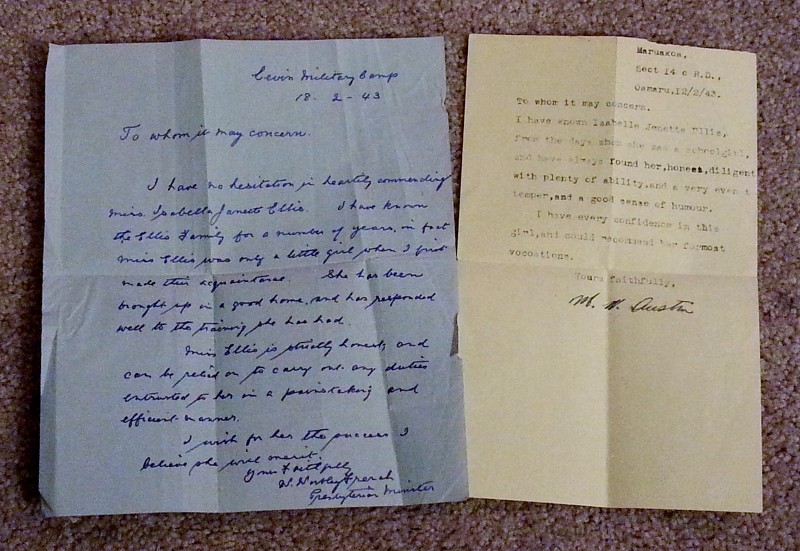 Levin Military Camp
18 - 2 - 43
To whom it may concern.
I have no hesitation in heartily commending
Miss. Isabella Janette Ellis. I have known
the Ellis Family for a number of years, in fact
Miss Ellis was only a little girl when I first
made their acquaintance. She has been
brought up in a good home, and has responded
well to the training she has had.
Miss Ellis is strictly honest, and
can be relied on to carry out any duties
entrusted to her in a painstaking and
efficient manner.
I wish for her the success I
believe she will merit.
Yours Faithfully
French
Presbyterian Minister
Maruakoa,
Sect 14 c R.D.,
Oamaru,12/2/43.
To whom it may concern.
I have known Isabelle Jenette Ellis,
from the days when she was a schoolgirl,
and have always found her,honest,diligent
with plenty of ability,and a very even t
temper,and a good sense of humour.
I have every confidence in this
girl,and could recommend her formost
vocations.
Yours faithfully,
M. W. Austin